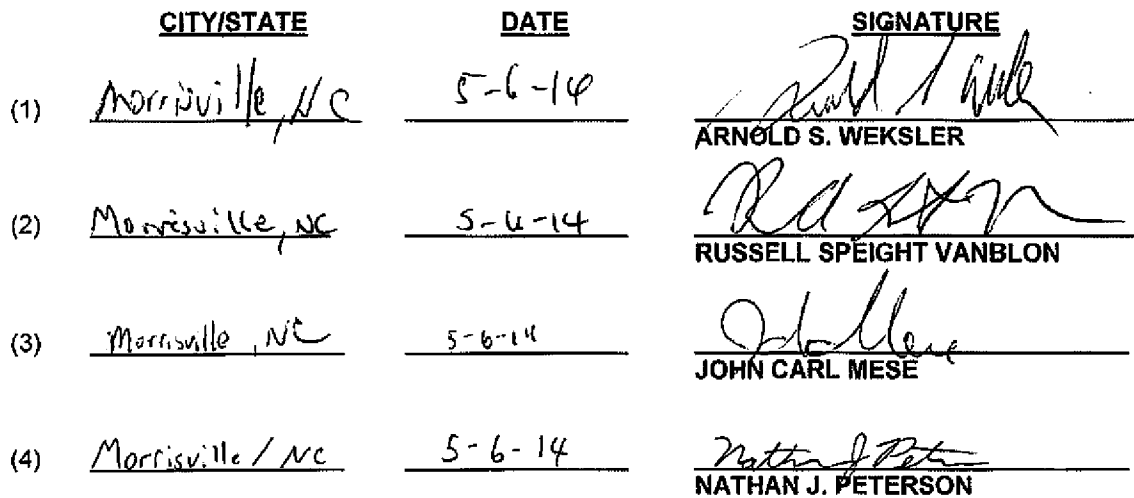 CITY/STATE DATE SIGNATURE
(1) Morrisville, NC 5-6-14
ARNOLD S. WEKSLER
(2) Morrisville, NC 5-6-14
RUSSELL SPEIGHT VANBLON
(3) Morrisville, NC 5-6-14
JOHN CARL MESE
(4) Morrisville / NC 5-6-14 Nathan J Peterson
NATHAN J. PETERSON